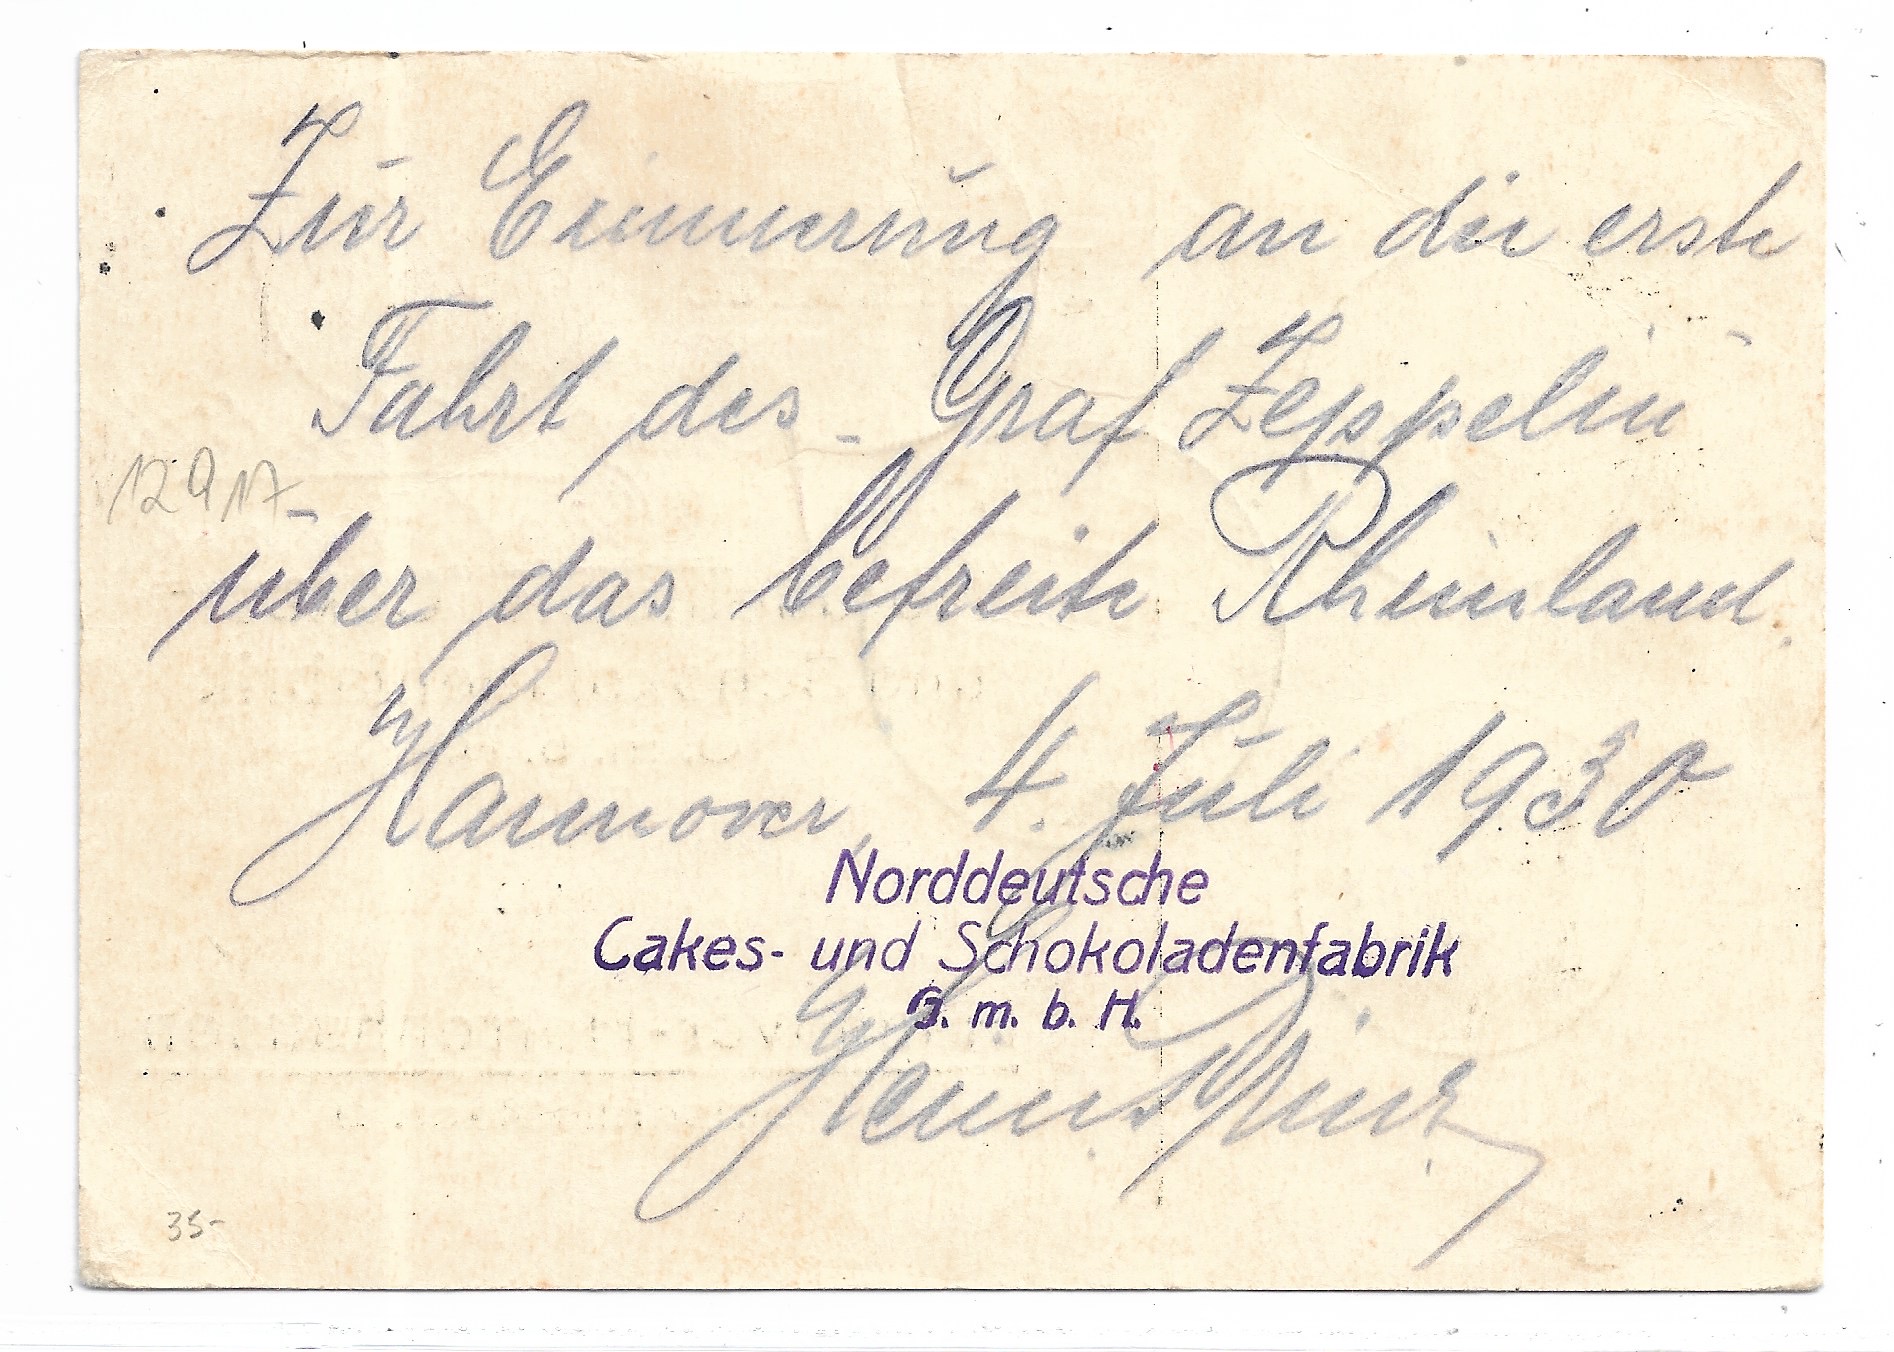 Zur Erinnerung an die erste
Fahrt des „Graf Zeppelin"
12917
über das befreite Rheinland.
Hannover, 4. Juli 1930
Norddeutsche
Cakes- und Schokoladenfabrik
G. m. b. H.
35-